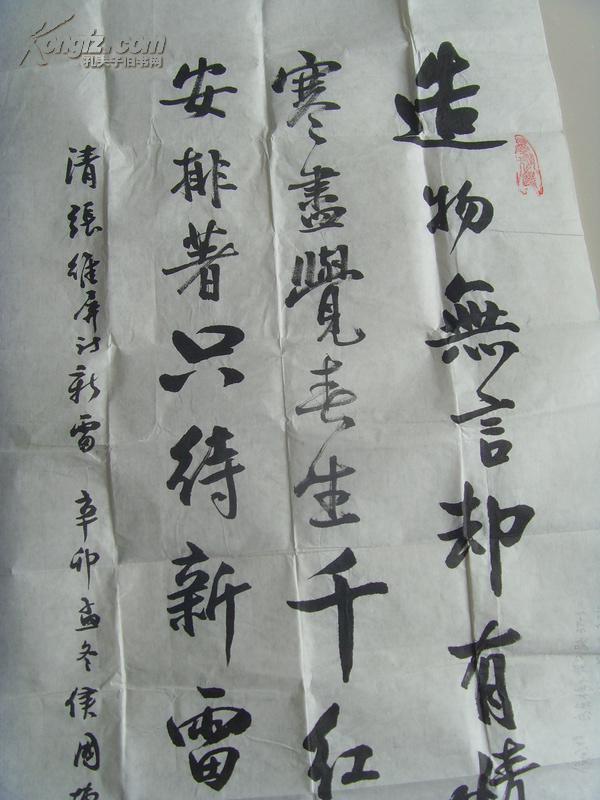 造物無言却有情
寒〻盡覺春生千红
安排著只待新雷
清張維屏詩新雷 辛卯孟冬侯国
Kongfz.com
孔夫子旧书网